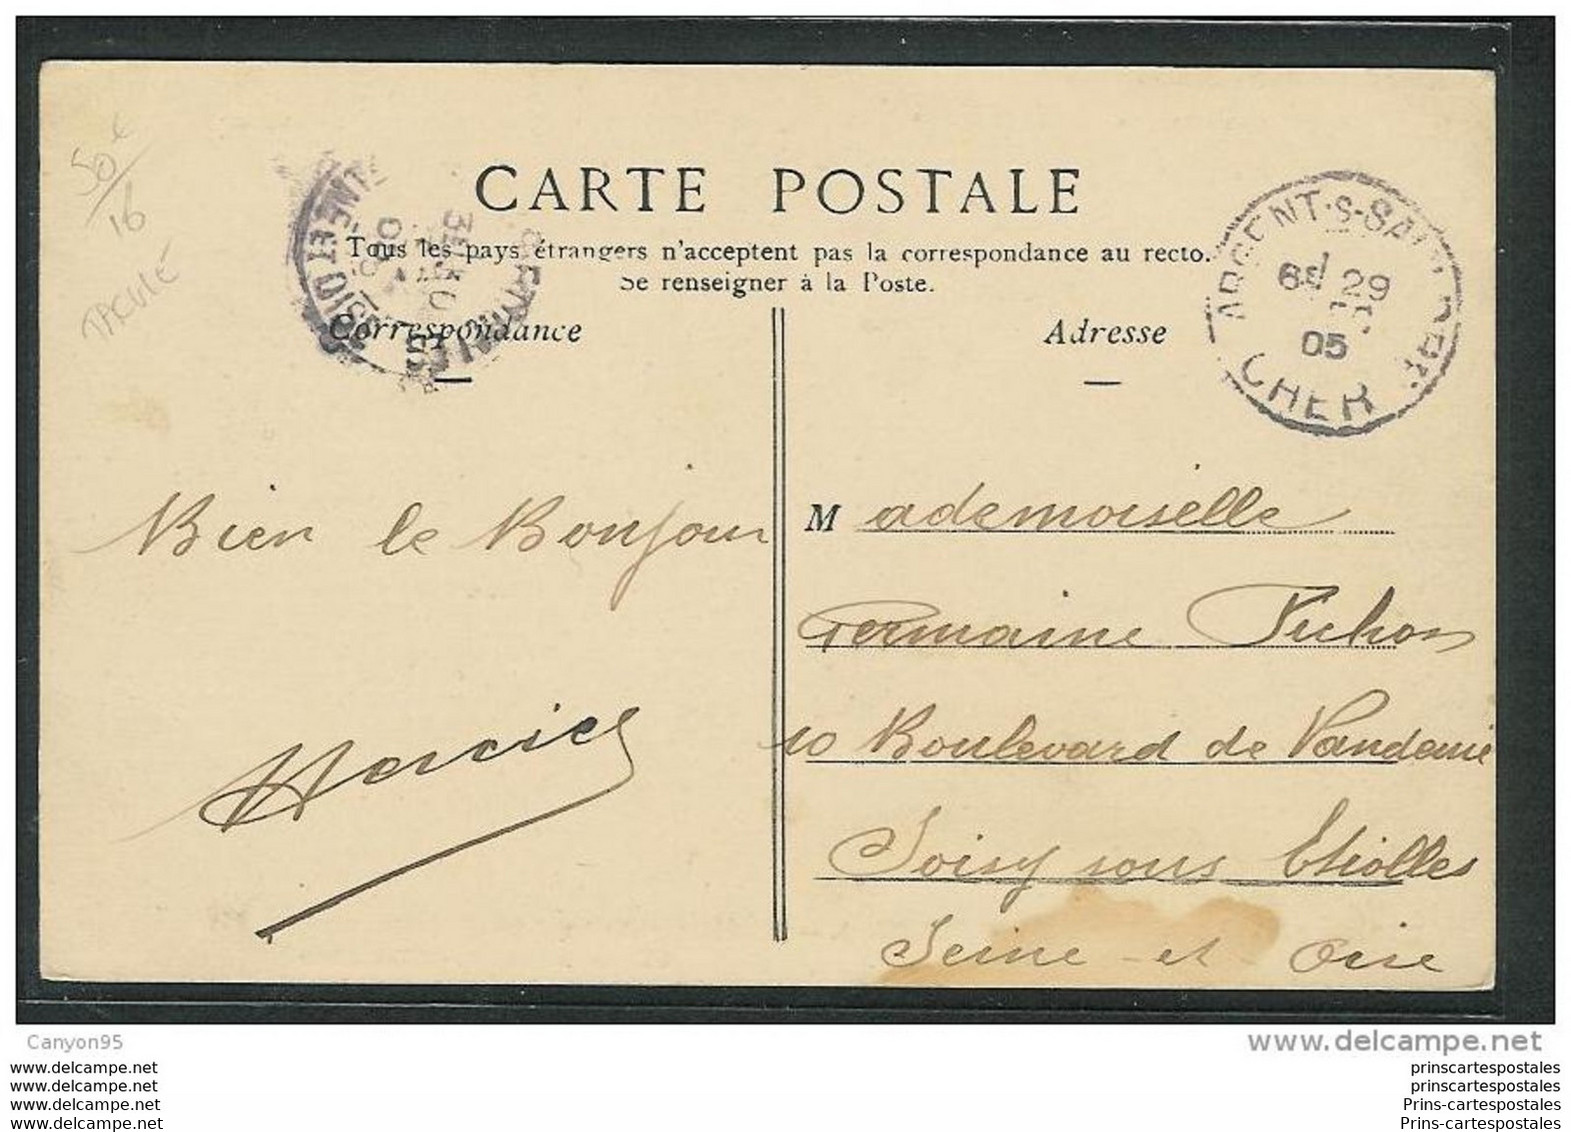 50e
16
TACULÉ
CARTE POSTALE
Tous les pays étrangers n'acceptent pas la correspondance au recto.
Se renseigner à la Poste.
Correspondance
Adresse
ARGENT-S-SAULDRE
29
05
CHER
Bien le Bonjour
Mademoiselle
Germaine
10 Boulevard de
Soisy sous Etiolles
Seine et Oise
Canyon95
www.delcampe.net
www.delcampe.net
www.delcampe.net
www.delcampe.net
www.delcampe.net
prinscartespostales
prinscartespostales
Prins-cartespostales
Prins-cartespostales